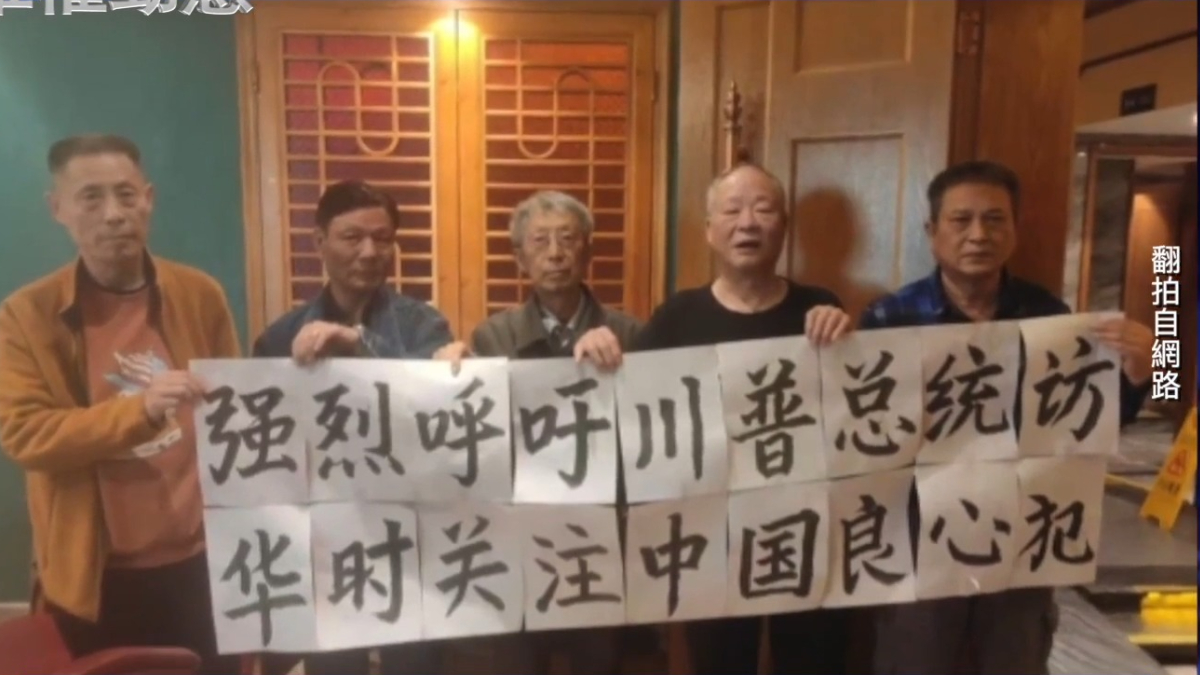 强烈呼吁川普总统访
华时关注中国良心犯
翻拍自網路